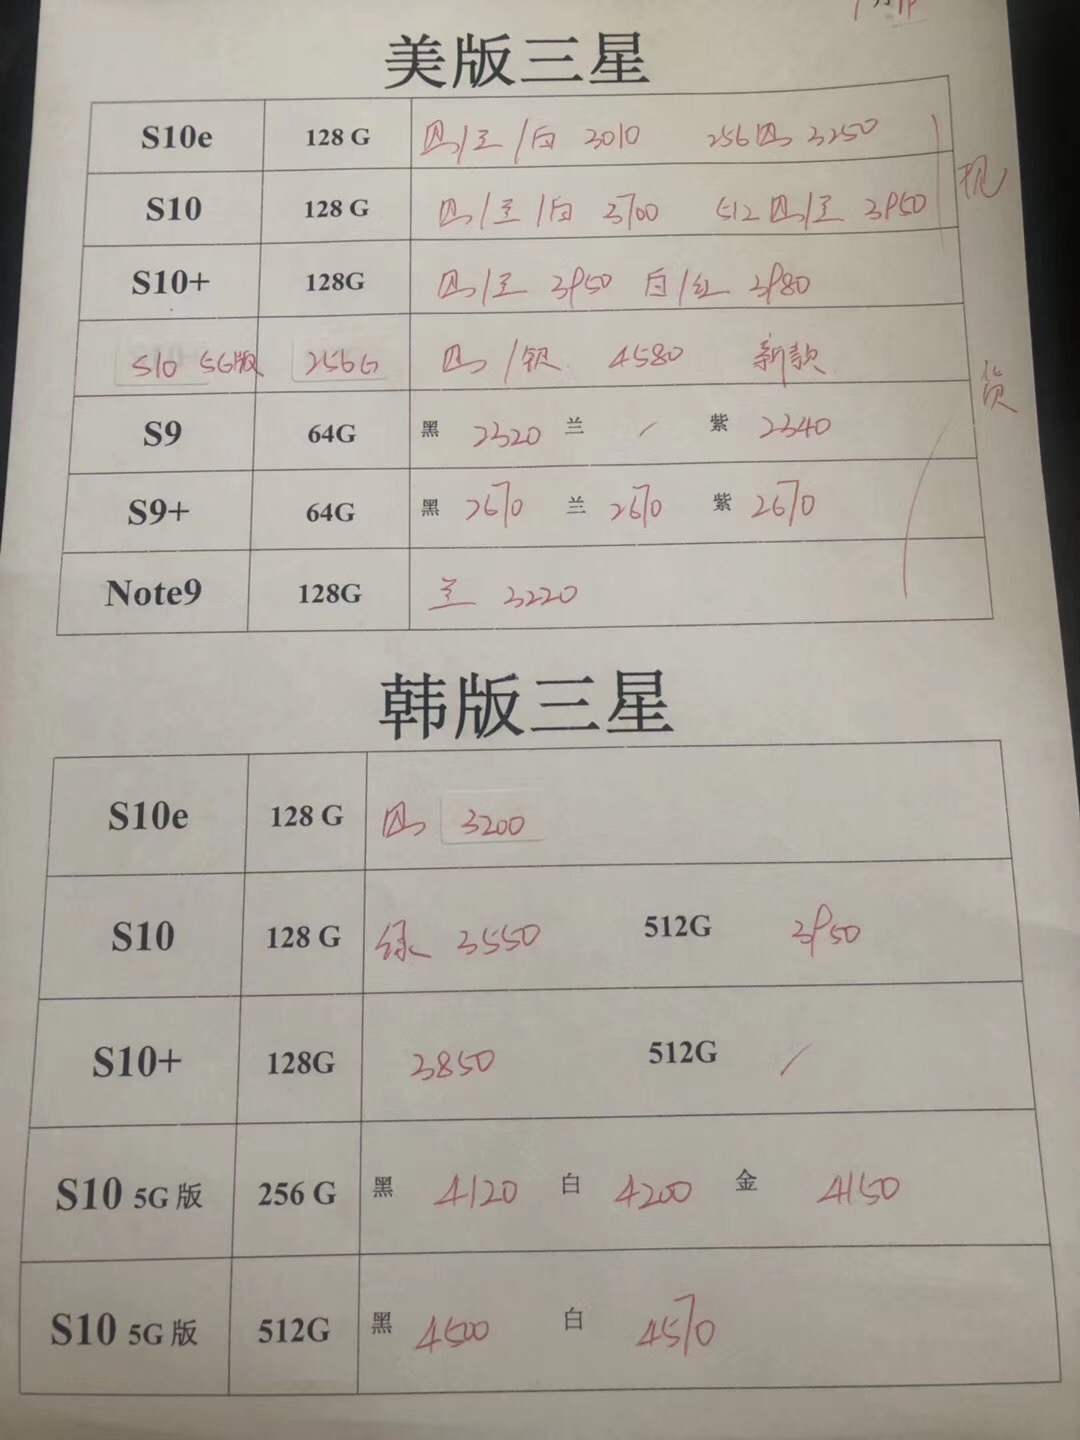 美版三星
S10e 128 G 黑/兰/白 3010 256黑 3250
S10 128 G 黑/兰/白 3700 512黑/兰 3950
S10+ 128G 黑/兰 3950 白/红 3980
S10 5G版 256G 黑/银 4580 新款
S9 64G 黑 2320 兰 / 紫 2340
S9+ 64G 黑 2670 兰 2670 紫 2670
Note9 128G 兰 3220
现
货
韩版三星
S10e 128 G 黑 3200
S10 128 G 绿 3550 512G 3950
S10+ 128G 3850 512G /
S10 5G 版 256 G 黑 4120 白 4200 金 4150
S10 5G 版 512G 黑 4500 白 4570